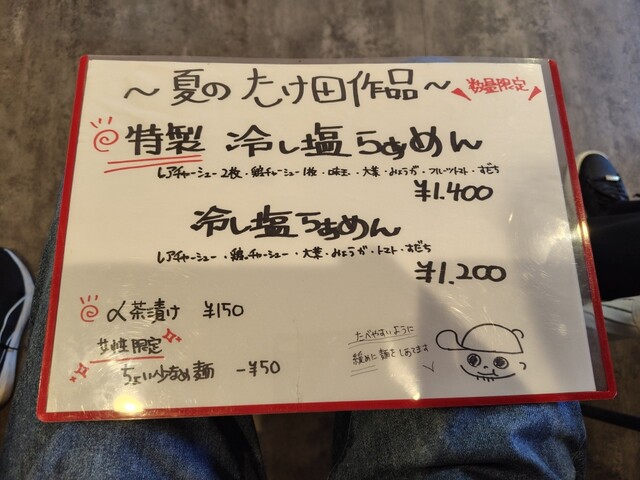 ～夏のたけ田作品～
数量限定
特製 冷し塩らぁめん
レアチャーシュー2枚・鶏チャーシュー1枚・味玉・大葉・みょうが・フルーツトマト・すだち
¥1.400
冷し塩らぁめん
レアチャーシュー・鶏チャーシュー・大葉・みょうが・トマト・すだち
¥1.200
〆茶漬け ¥150
女性限定
ちょい少なめ麺 -¥50
たべやすいように
緩めに麺をしあてます